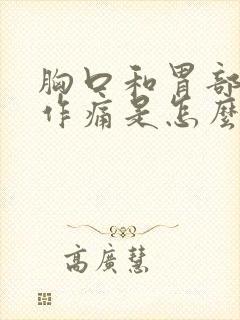 胸口和胃部
作痛是怎麼
高廣慧